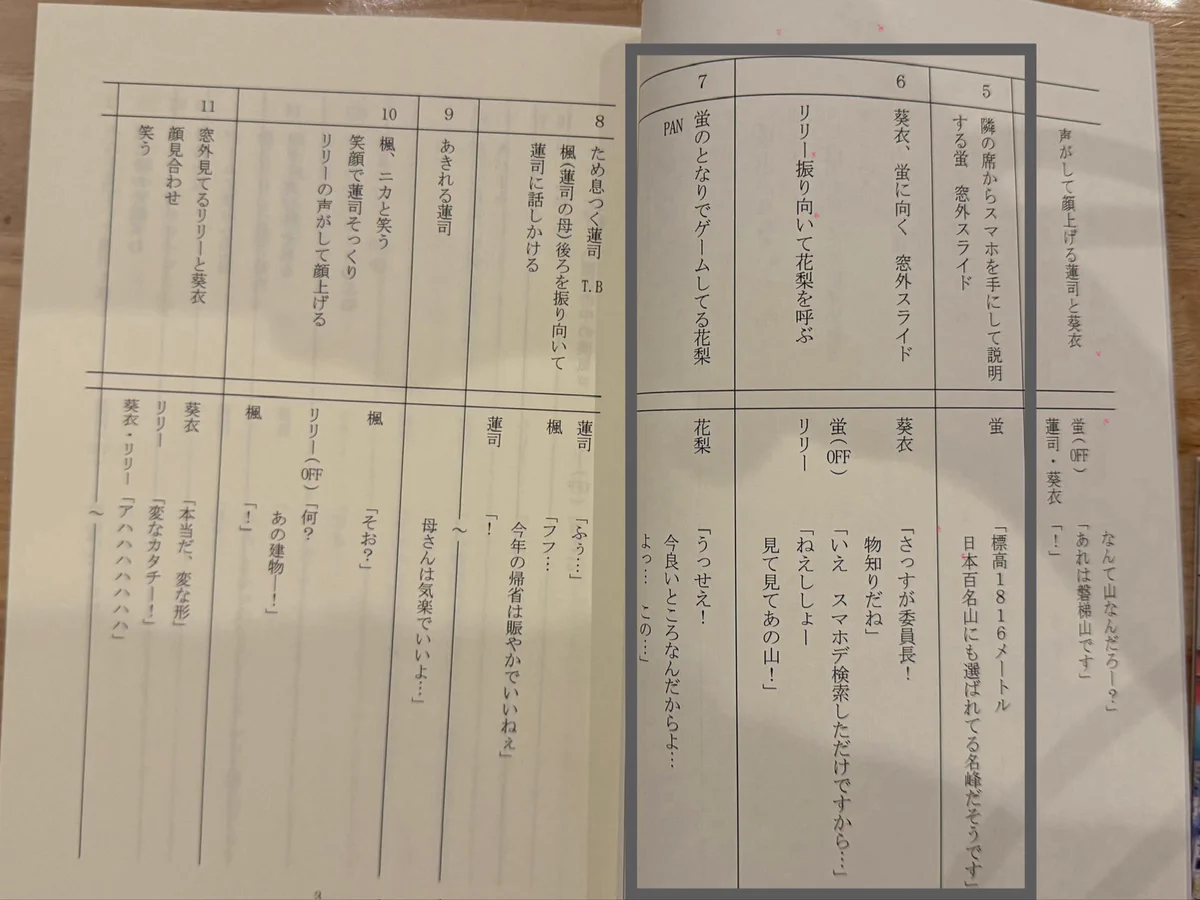 声がして顔上げる蓮司と葵衣
なんて山なんだろー？」
蛍(OFF)「あれは磐梯山です」
蓮司・葵衣「！」
5
隣の席からスマホを手にして説明
する蛍　窓外スライド
蛍「標高1816メートル
日本百名山にも選ばれてる名峰だそうです」
6
葵衣、蛍に向く　窓外スライド
リリー振り向いて花梨を呼ぶ
葵衣「さっすが委員長！
物知りだね」
蛍(OFF)「いえ スマホデ検索しただけですから…」
リリー「ねえししょー
見て見てあの山！」
7
蛍のとなりでゲームしてる花梨
PAN
花梨「うっせえ！
今良いところなんだからよ…
よっ… この…」
8
ため息つく蓮司　T.B
楓(蓮司の母)後ろを振り向いて
蓮司に話しかける
蓮司「ふぅ…」
楓「フフ…
今年の帰省は賑やかでいいねぇ」
蓮司「！
〜
9
あきれる蓮司
母さんは気楽でいいよ…」
10
楓、ニカと笑う
笑顔で蓮司そっくり
リリーの声がして顔上げる
楓「そお？」
リリー(OFF)「何？
あの建物ー！」
楓「！」
11
窓外見てるリリーと葵衣
顔見合わせ
笑う
葵衣「本当だ、変な形」
リリー「変なカタチー！」
葵衣・リリー「アハハハハハハハ」
〜